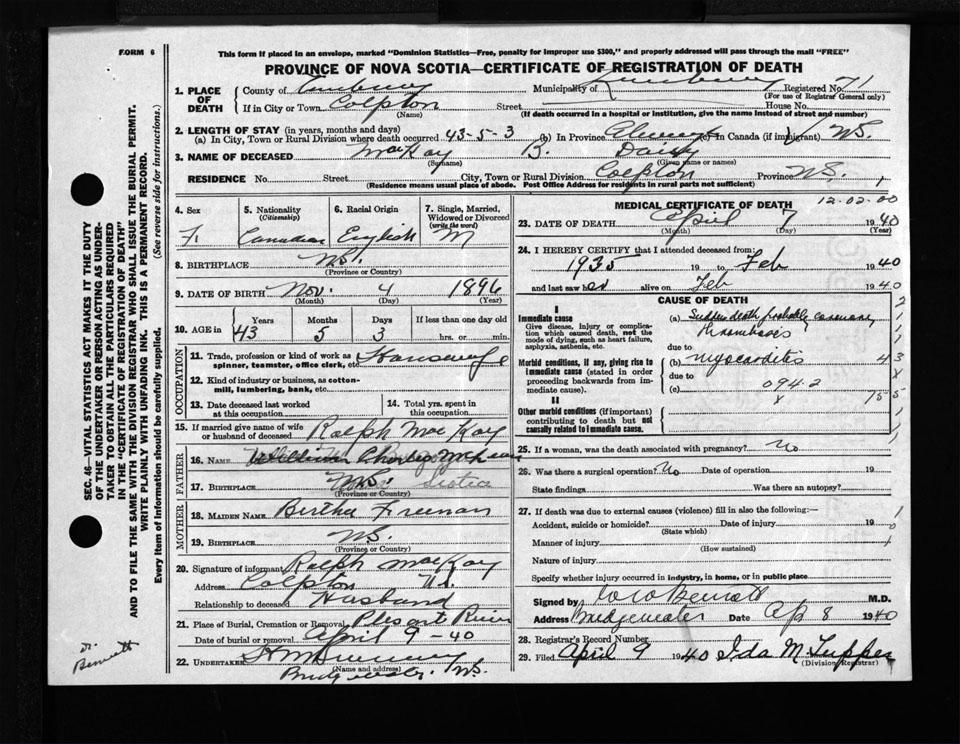 FORM 6
This form if placed in an envelope, marked "Dominion Statistics—Free, penalty for improper use $300," and properly addressed will pass through the mail "FREE"
PROVINCE OF NOVA SCOTIA—CERTIFICATE OF REGISTRATION OF DEATH
SEC. 46—VITAL STATISTICS ACT MAKES IT THE DUTY
OF THE UNDERTAKER OR PERSON ACTING AS UNDER-
TAKER TO OBTAIN ALL THE PARTICULARS REQUIRED
IN THE "CERTIFICATE OF REGISTRATION OF DEATH"
AND TO FILE THE SAME WITH THE DIVISION REGISTRAR WHO SHALL ISSUE THE BURIAL PERMIT.
WRITE PLAINLY WITH UNFADING INK. THIS IS A PERMANENT RECORD.
Every item of Information should be carefully supplied. (See reverse side for instructions.)
1. PLACE OF DEATH
County of Lunenburg Municipality of Lunenburg Registered No. 71
(For use of Registrar General only)
If in City or Town Colpton Street House No.
(Name)
(If death occurred in a hospital or institution, give the name instead of street and number)
2. LENGTH OF STAY (in years, months and days)
(a) In City, Town or Rural Division where death occurred 43-5-3 (b) In Province Always (c) In Canada (if immigrant) N.S.
3. NAME OF DECEASED MacKay B. Daisy
(Surname) (Given name or names)
RESIDENCE No. Street City, Town or Rural Division Colpton Province N.S. 1
(Residence means usual place of abode. Post Office Address for residents in rural parts not sufficient)
4. Sex F.
5. Nationality (Citizenship) Canadian
6. Racial Origin English
7. Single, Married, Widowed or Divorced (write the word) M
8. BIRTHPLACE N.S.
(Province or Country)
9. DATE OF BIRTH Nov. 4 1896
(Month) (Day) (Year)
10. AGE in Years Months Days If less than one day old
43 5 3 hrs. or min.
OCCUPATION
11. Trade, profession or kind of work as spinner, teamster, office clerk, etc. Housewife
12. Kind of industry or business, as cotton-mill, lumbering, bank, etc.
13. Date deceased last worked at this occupation
14. Total yrs. spent in this occupation
15. If married give name of wife or husband of deceased Ralph MacKay
FATHER
16. NAME William Charles
17. BIRTHPLACE N.S. Scotia
(Province or Country)
MOTHER
18. MAIDEN NAME Bertha Freeman
19. BIRTHPLACE N.S.
(Province or Country)
20. Signature of informant Ralph MacKay
Address Colpton N.S.
Relationship to deceased Husband
21. Place of Burial, Cremation or Removal Plesant River
Date of burial or removal April 9-40
22. UNDERTAKER
(Name and address)
Bridgewater, N.S.
Dr.
Bennett
MEDICAL CERTIFICATE OF DEATH 12-02-00
23. DATE OF DEATH April 7 1940
(Month) (Day) (Year)
24. I HEREBY CERTIFY that I attended deceased from:
1935 19 to Feb 1940
and last saw her alive on Feb 1940
CAUSE OF DEATH
I
Immediate cause
Give disease, injury or complication which caused death, not the mode of dying, such as heart failure, asphyxia, asthenia, etc.
(a) Sudden death probably coronary
thrombosis
due to
Morbid conditions, if any, giving rise to Immediate cause (stated in order proceeding backwards from immediate cause).
(b) myocarditis
due to
(c) 094.2
II
Other morbid conditions (if important) contributing to death but not causally related to immediate cause.
25. If a woman, was the death associated with pregnancy? No
26. Was there a surgical operation? No Date of operation 19
State findings Was there an autopsy?
27. If death was due to external causes (violence) fill in also the following:—
Accident, suicide or homicide? Date of injury 19
(State which)
Manner of injury
(How sustained)
Nature of injury
Specify whether injury occurred in industry, in home, or in public place
Signed by Bennett M.D.
Address Bridgewater Date Ap 8 1940
28. Registrar's Record Number
29. Filed April 9 1940 Ida M Tupper
(Division Registrar)